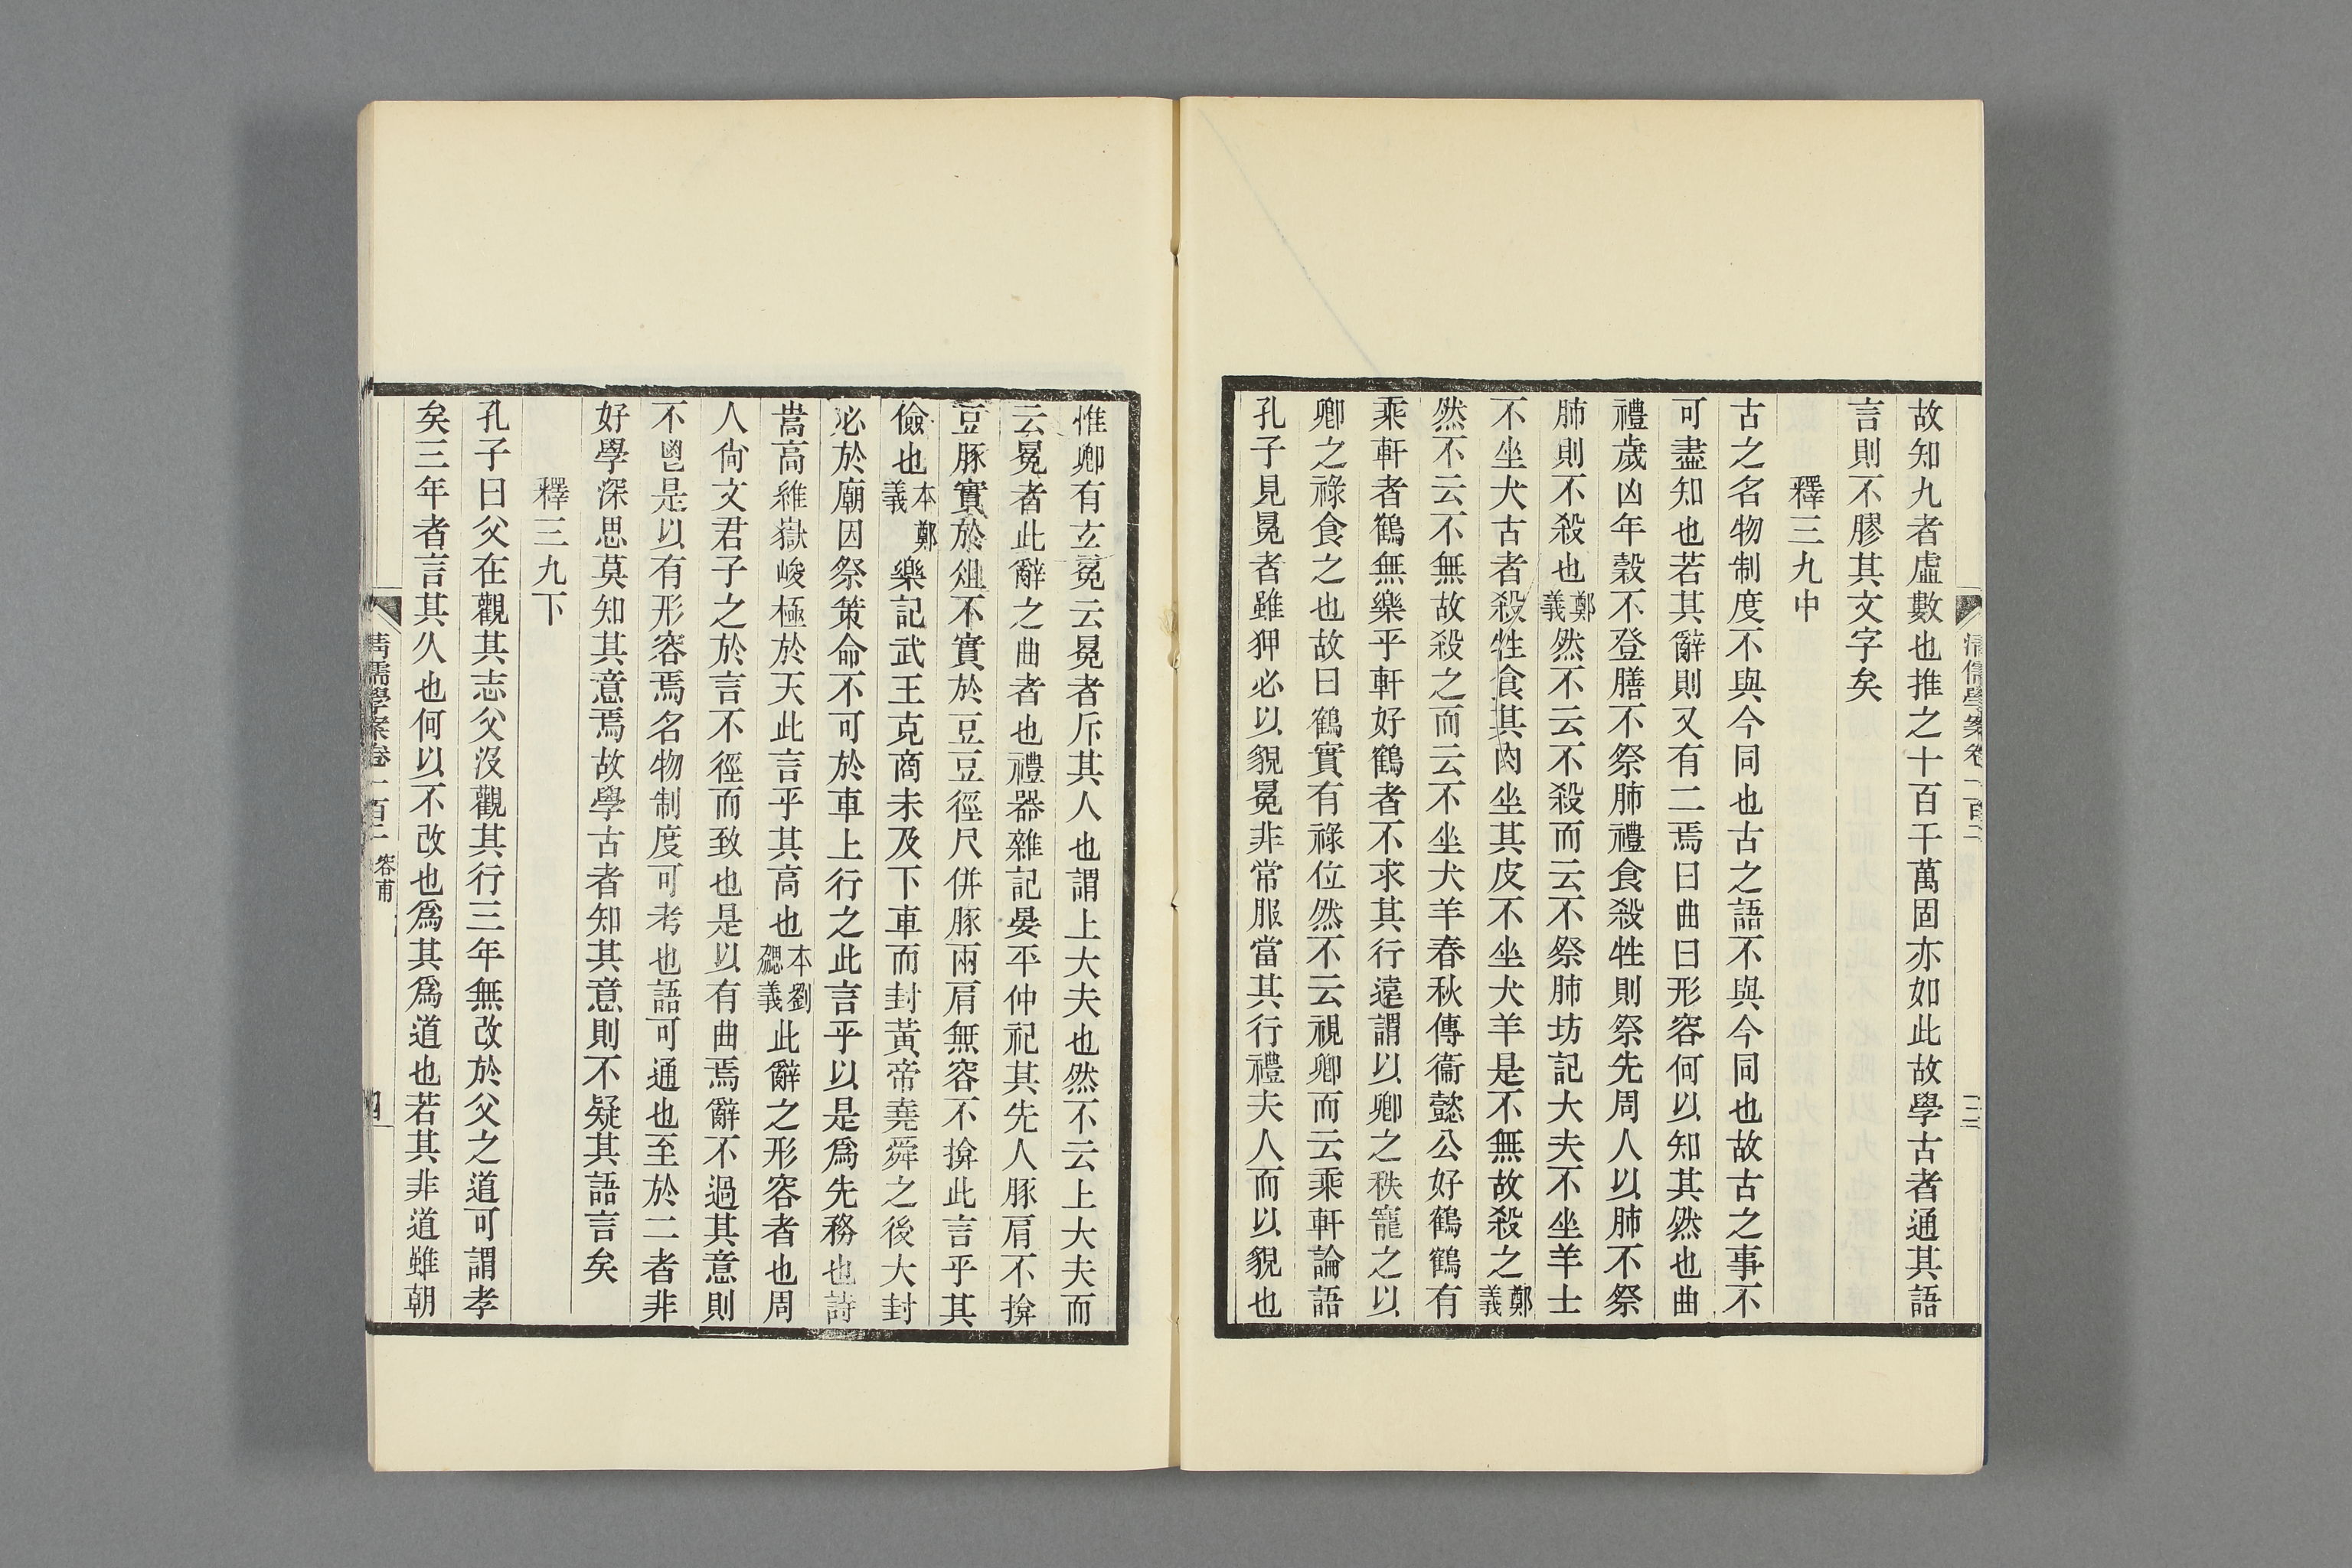 清儒學案卷一百二
三
故知九者虛數也推之十百千萬固亦如此故學古者通其語
言則不膠其文字矣
釋三九中
古之名物制度不與今同也古之語不與今同也故古之事不
可盡知也若其辭則又有二焉曰曲曰形容何以知其然也曲
禮歲凶年穀不登膳不祭肺禮食殺牲則祭先周人以肺不祭
肺則不殺也鄭義然不云不殺而云不祭肺坊記大夫不坐羊士
不坐犬古者殺牲食其肉坐其皮不坐犬羊是不無故殺之鄭義
然不云不無故殺之而云不坐犬羊春秋傳衞懿公好鶴鶴有
乘軒者鶴無樂乎軒好鶴者不求其行遠謂以卿之秩寵之以
卿之祿食之也故曰鶴實有祿位然不云視卿而云乘軒論語
孔子見冕者雖狎必以貌冕非常服當其行禮夫人而以貌也
惟卿有玄冕云冕者斥其人也謂上大夫也然不云上大夫而
云冕者此辭之曲者也禮器雜記晏平仲祀其先人豚肩不揜
豆豚實於俎不實於豆豆徑尺併豚兩肩無容不揜此言乎其
儉也本鄭義樂記武王克商未及下車而封黃帝堯舜之後大封
必於廟因祭策命不可於車上行之此言乎以是爲先務也詩
嵩高維嶽峻極於天此言乎其高也本劉勰義此辭之形容者也周
人尙文君子之於言不徑而致也是以有曲焉辭不過其意則
不鬯是以有形容焉名物制度可考也語可通也至於二者非
好學深思莫知其意焉故學古者知其意則不疑其語言矣
釋三九下
孔子曰父在觀其志父沒觀其行三年無改於父之道可謂孝
矣三年者言其久也何以不改也爲其爲道也若其非道雖朝
清儒學案卷一百二 容甫
四